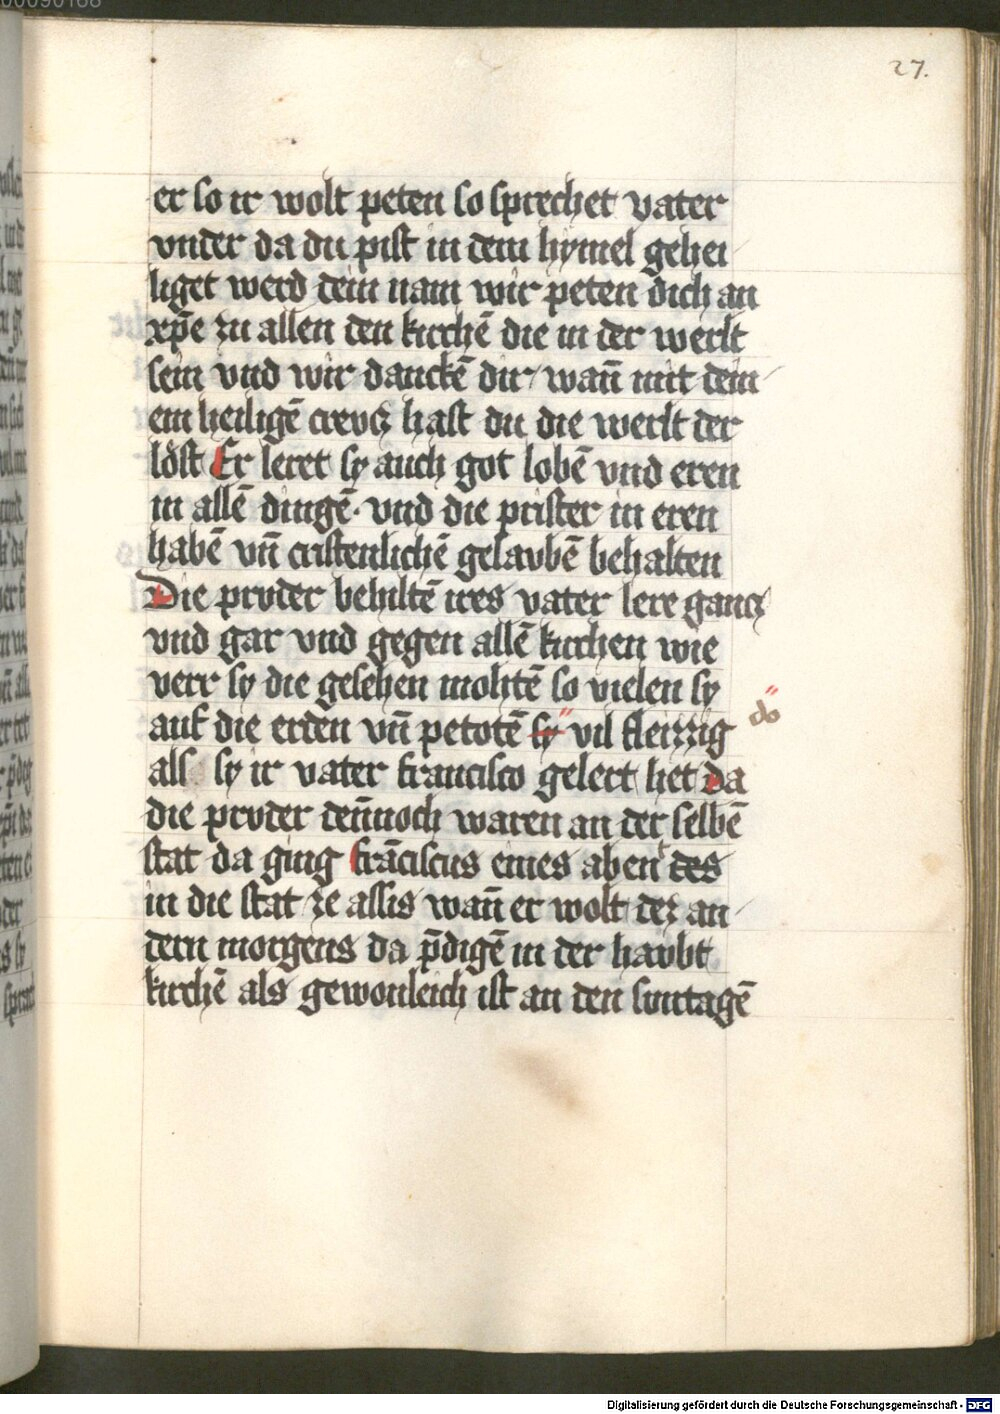 27.
er so ir wolt peten so sprechet vater
vnder da du pist in dem hymel gehei
liget werd dein nam wir peten dich an
xp̄e zu allen den kirchē die in der werlt
sein vnd wir danckē dir wan̄ mit dein
em heiligē crevcz hast du die werlt der
löst Er leret sy auch got lobē vnd eren
in allē dingē· vnd die prister in eren
habē vn̄ cristenlichē gelavbē behalten
Die pruder behiltē ires vater lere gancz
vnd gar vnd gegen allē kirchen wie
verr sy die gesehen mohtē so vielen sy
auf die erden vn̄ petotē sy vil fleizzig
do
als sy ir vater francisco gelert het da
die pruder den̄noch waren an der selbē
stat da ging frāciscus eines aben des
in die stat ze assis wan̄ er wolt dez an
dern morgens da p̄digē in der havbt
kirchē als gewonleich ist an den suntagē
Digitalisierung gefördert durch die Deutsche Forschungsgemeinschaft - DFG